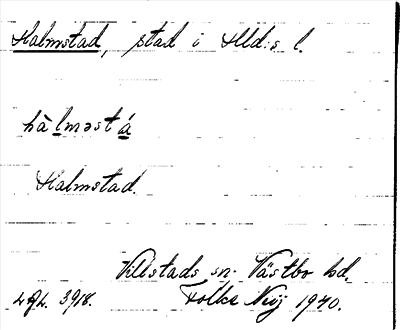 Halmstad, stad i Hld:s l.
hàlməstá
Halmstad.
Villstads sn. Västbo hd.
3918. Folke Nuij 1940.